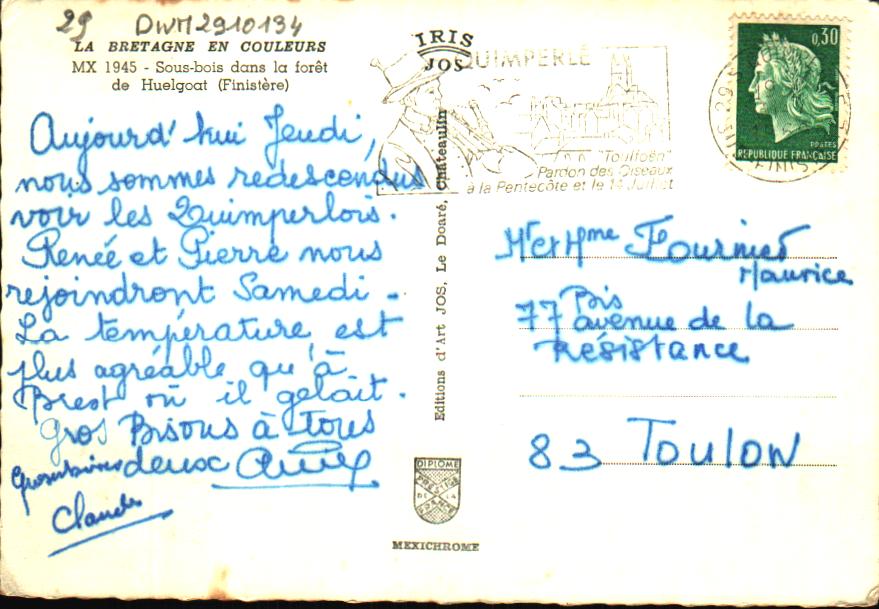 29 DWM2910134
LA BRETAGNE EN COULEURS
MX 1945 - Sous-bois dans la forêt
de Huelgoat (Finistère)
Aujourd'hui Jeudi,
nous sommes redescendus
voir les Quimperlois.
Renée et Pierre nous
rejoindront Samedi -
La température est
plus agréable qu'à
Brest où il gelait.
Gros Bisous à tous
deux
Claude
IRIS
JOS
Editions d'Art JOS, Le Doaré, Châteaulin
DIPLOME
PRESTIGE
DE LA
FRANCE
MEXICHROME
QUIMPERLÉ
"Toulfoën"
Pardon des Oiseaux
à la Pentecôte et le 14 Juillet
0,30
POSTES
REPUBLIQUE FRANÇAISE
Mr et Mme Fournier
Maurice
77 Bis avenue de la
Résistance
83 TOULON